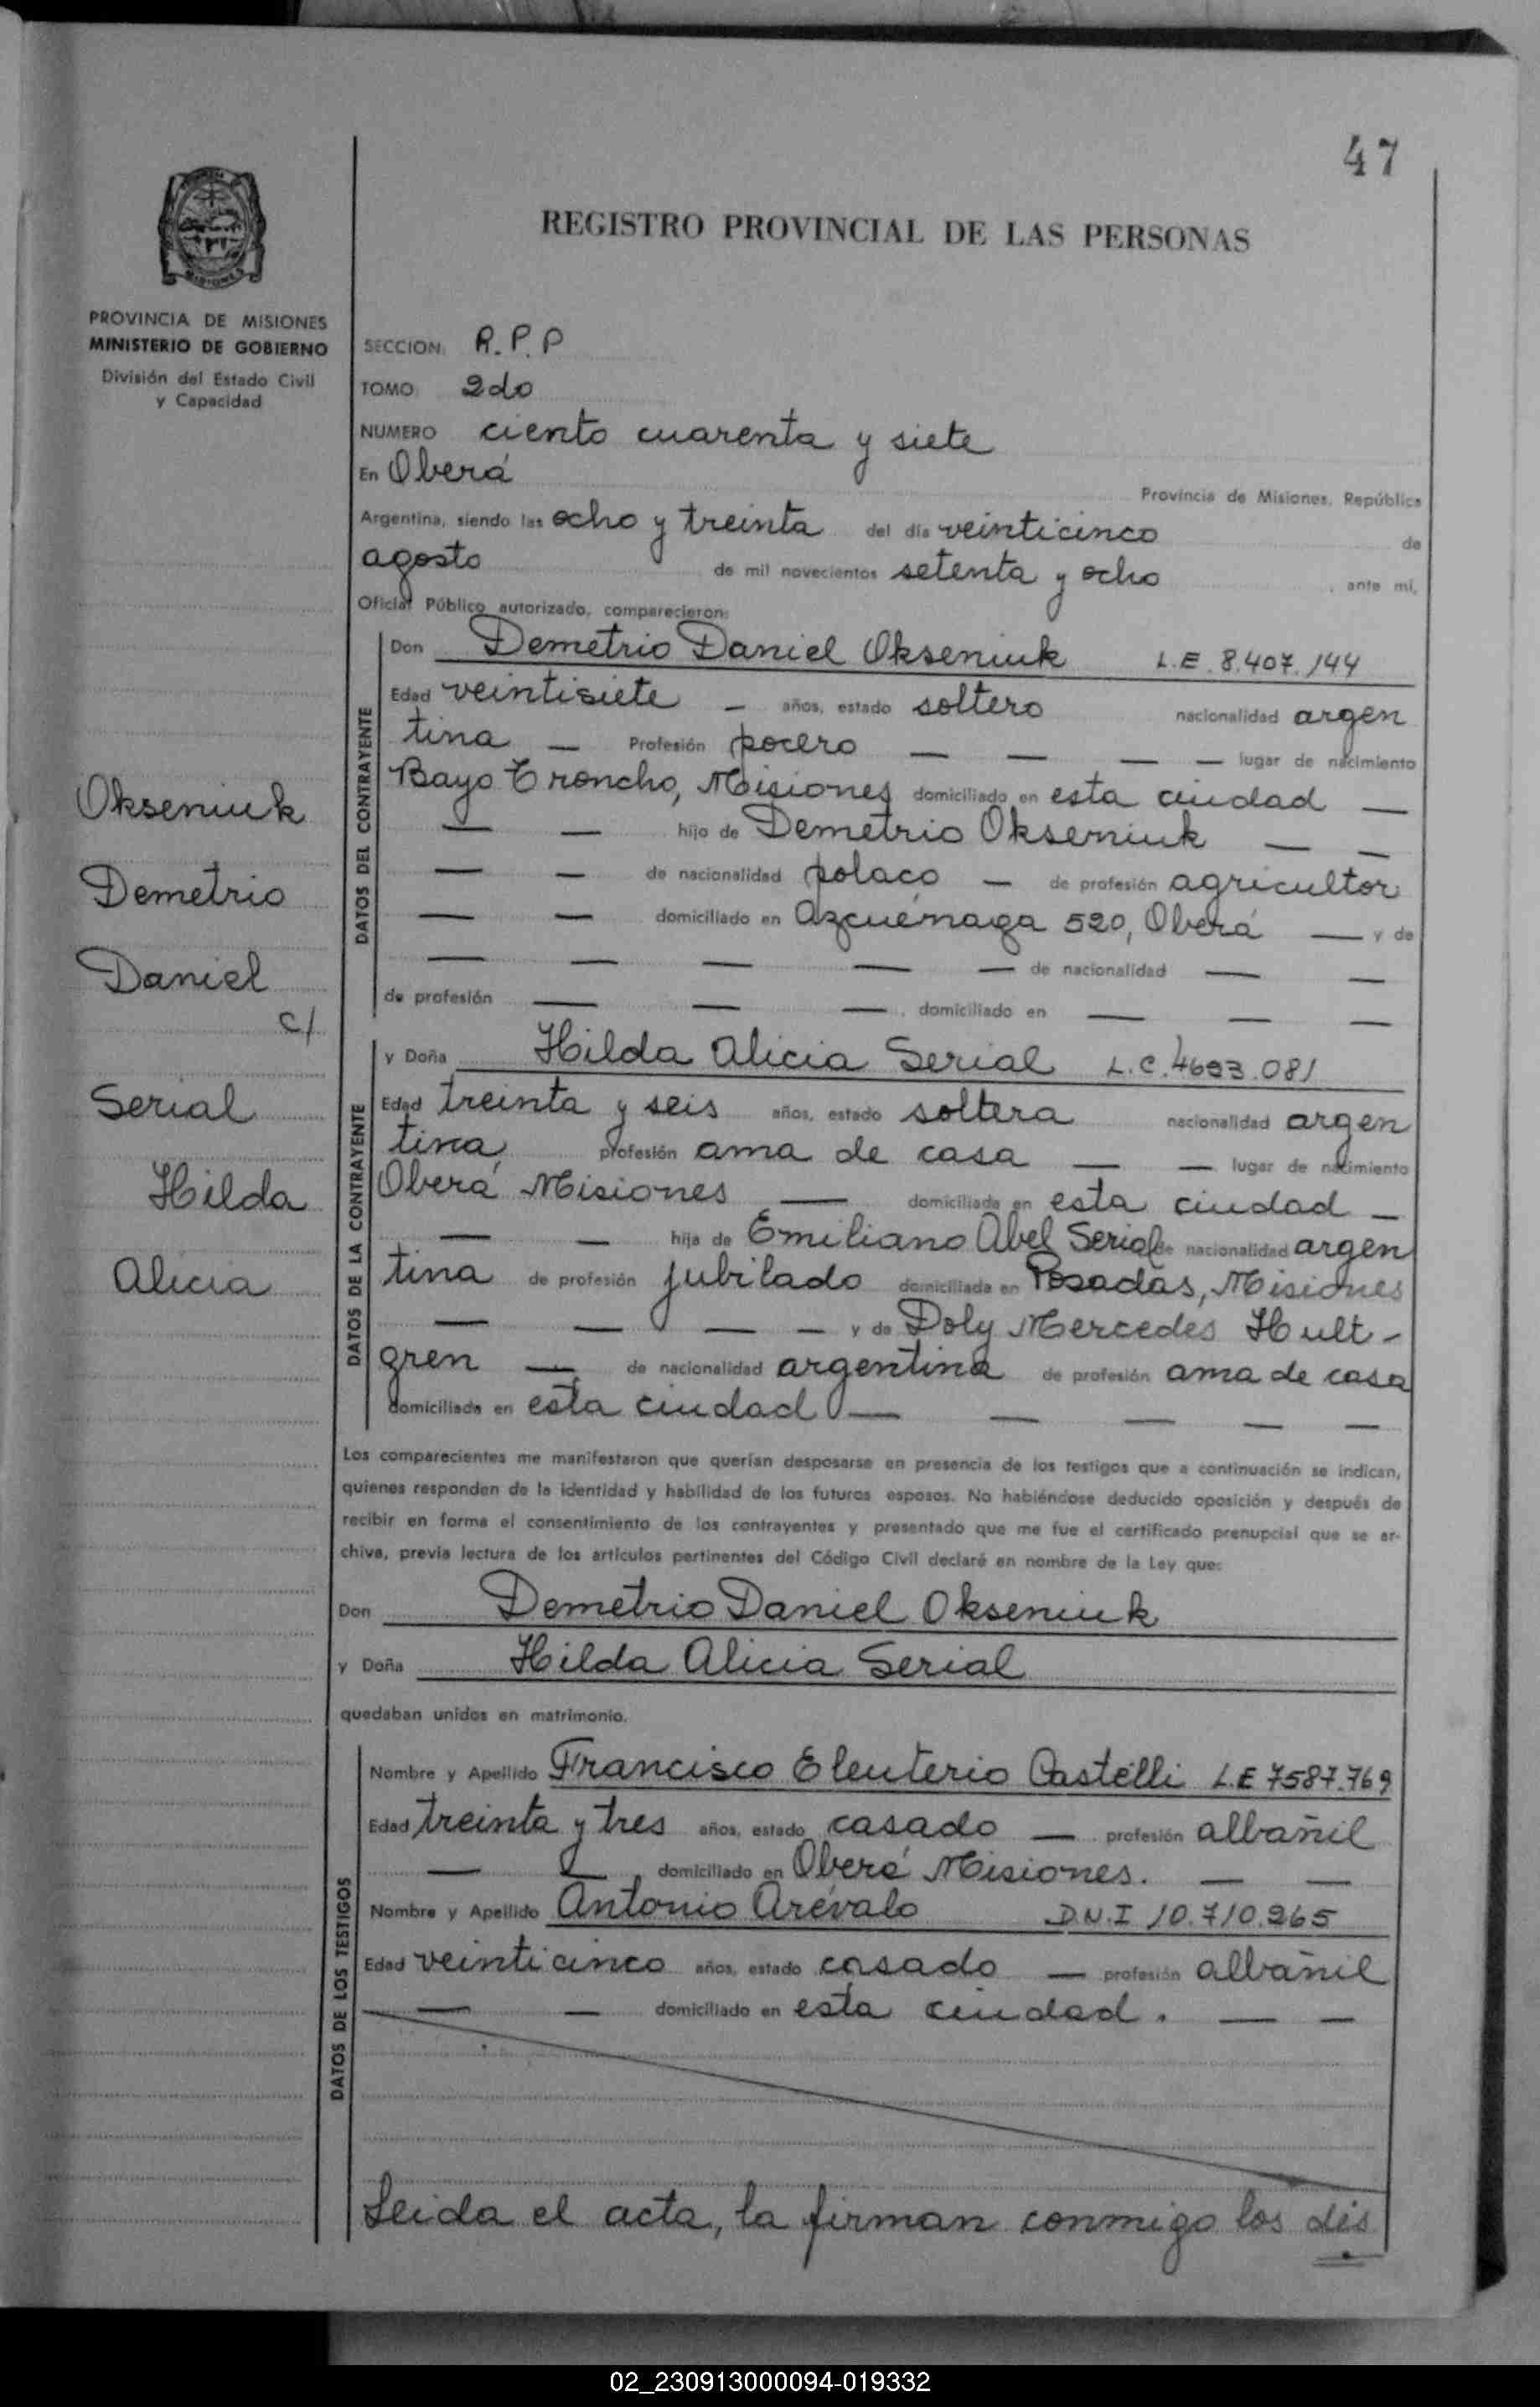 47
REGISTRO PROVINCIAL DE LAS PERSONAS
MISIONES
PROVINCIA DE MISIONES
MINISTERIO DE GOBIERNO
División del Estado Civil
y Capacidad
SECCION: R.P.P
TOMO 2do
NUMERO ciento cuarenta y siete
En Oberá
Provincia de Misiones, República
Argentina, siendo las ocho y treinta del día veinticinco de
agosto de mil novecientos setenta y ocho, ante mí,
Oficial Público autorizado, comparecieron:
DATOS DEL CONTRAYENTE
Don Demetrio Daniel Okseniuk L.E. 8.407.144
Edad veintisiete — años, estado soltero nacionalidad argen
tina — Profesión pocero — — — — lugar de nacimiento
Bayo Troncho, Misiones domiciliado en esta ciudad —
— — hijo de Demetrio Okseniuk — —
— — de nacionalidad polaco — de profesión agricultor
— — domiciliado en Azcuénaga 520, Oberá — y de
— — — — — de nacionalidad — —
de profesión — — —, domiciliado en — — —
Okseniuk
Demetrio
Daniel
c/
Serial
Hilda
Alicia
DATOS DE LA CONTRAYENTE
y Doña Hilda Alicia Serial L.C. 4693.081
Edad treinta y seis años, estado soltera nacionalidad argen
tina, profesión ama de casa — — lugar de nacimiento
Oberá Misiones — domiciliada en esta ciudad —
— — hija de Emiliano Abel Serial de nacionalidad argen
tina de profesión jubilado domiciliada en Posadas, Misiones
— — — — y de Doly Mercedes Hult-
gren — de nacionalidad argentina de profesión ama de casa
domiciliada en esta ciudad — — — — —
Los comparecientes me manifestaron que querían desposarse en presencia de los testigos que a continuación se indican,
quienes responden de la identidad y habilidad de los futuros esposos. No habiéndose deducido oposición y después de
recibir en forma el consentimiento de los contrayentes y presentado que me fue el certificado prenupcial que se ar-
chiva, previa lectura de los artículos pertinentes del Código Civil declaré en nombre de la Ley que:
Don Demetrio Daniel Okseniuk
y Doña Hilda Alicia Serial
quedaban unidos en matrimonio.
DATOS DE LOS TESTIGOS
Nombre y Apellido Francisco Eleuterio Castelli L.E 7587.769
Edad treinta y tres años, estado casado — profesión albañil
— — domiciliado en Oberá Misiones. — —
Nombre y Apellido Antonio Arévalo D.N.I 10.710.265
Edad veinticinco años, estado casado — profesión albañil
— — domiciliado en esta ciudad. — —
Leida el acta, la firman conmigo los dés
02_230913000094-019332